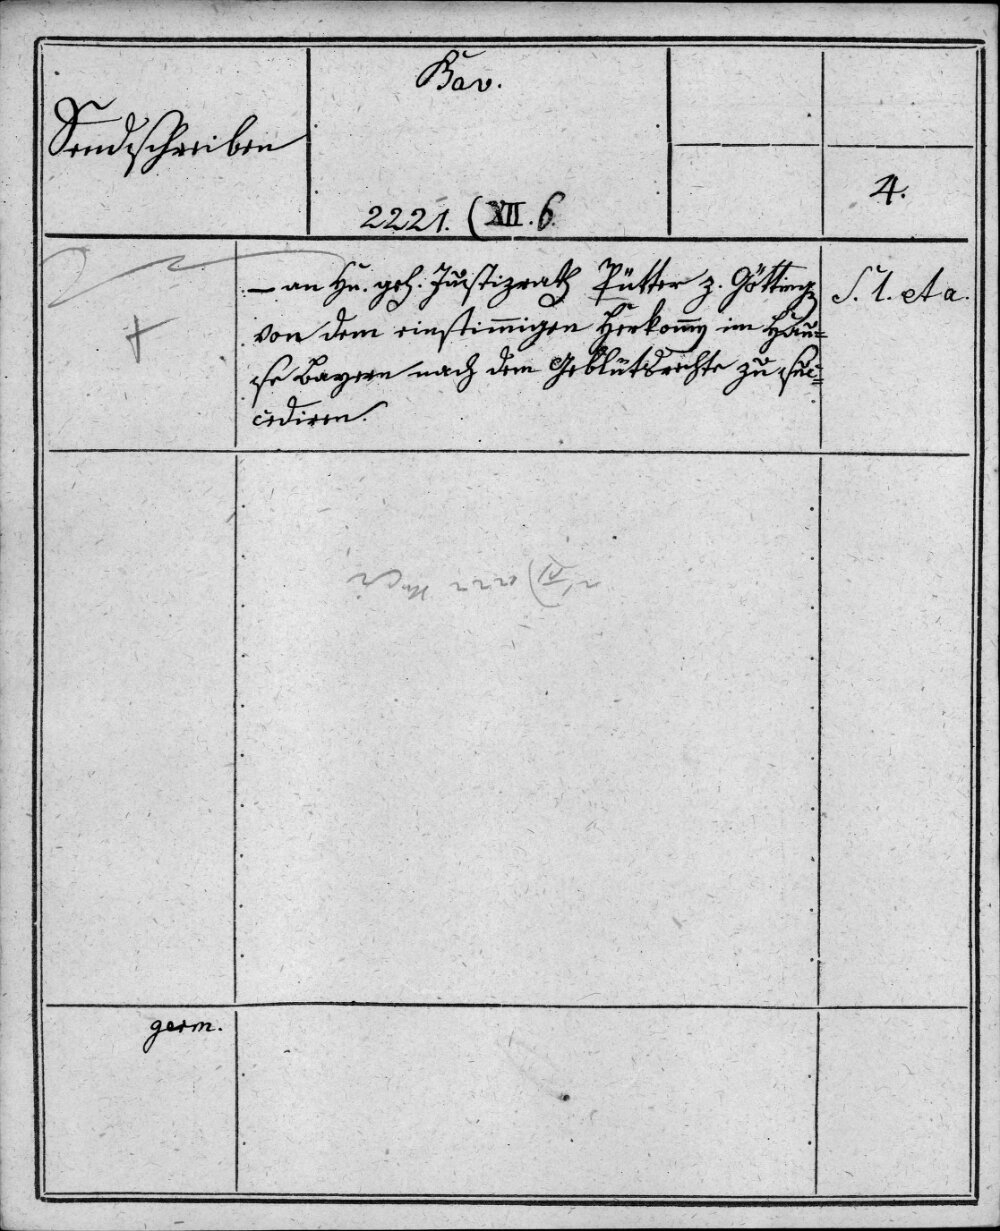 Bav.
Sendschreiben
4.
2221. (XII. 6.
— an Hn. geh. Justizrath Pütter z. Götting.
von dem einstimmigen Herkom̄en im Hau=
se Bayern nach dem Geblütsrechte zu suc=
cediren.
S. l. et a.
germ.